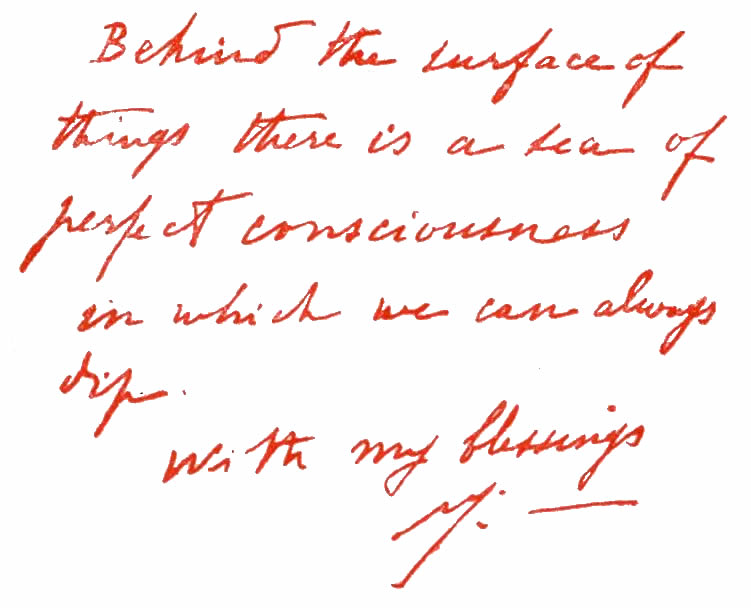 Behind the surface of
things there is a sea of
perfect consciousness
in which we can always
dip.
with my blessings